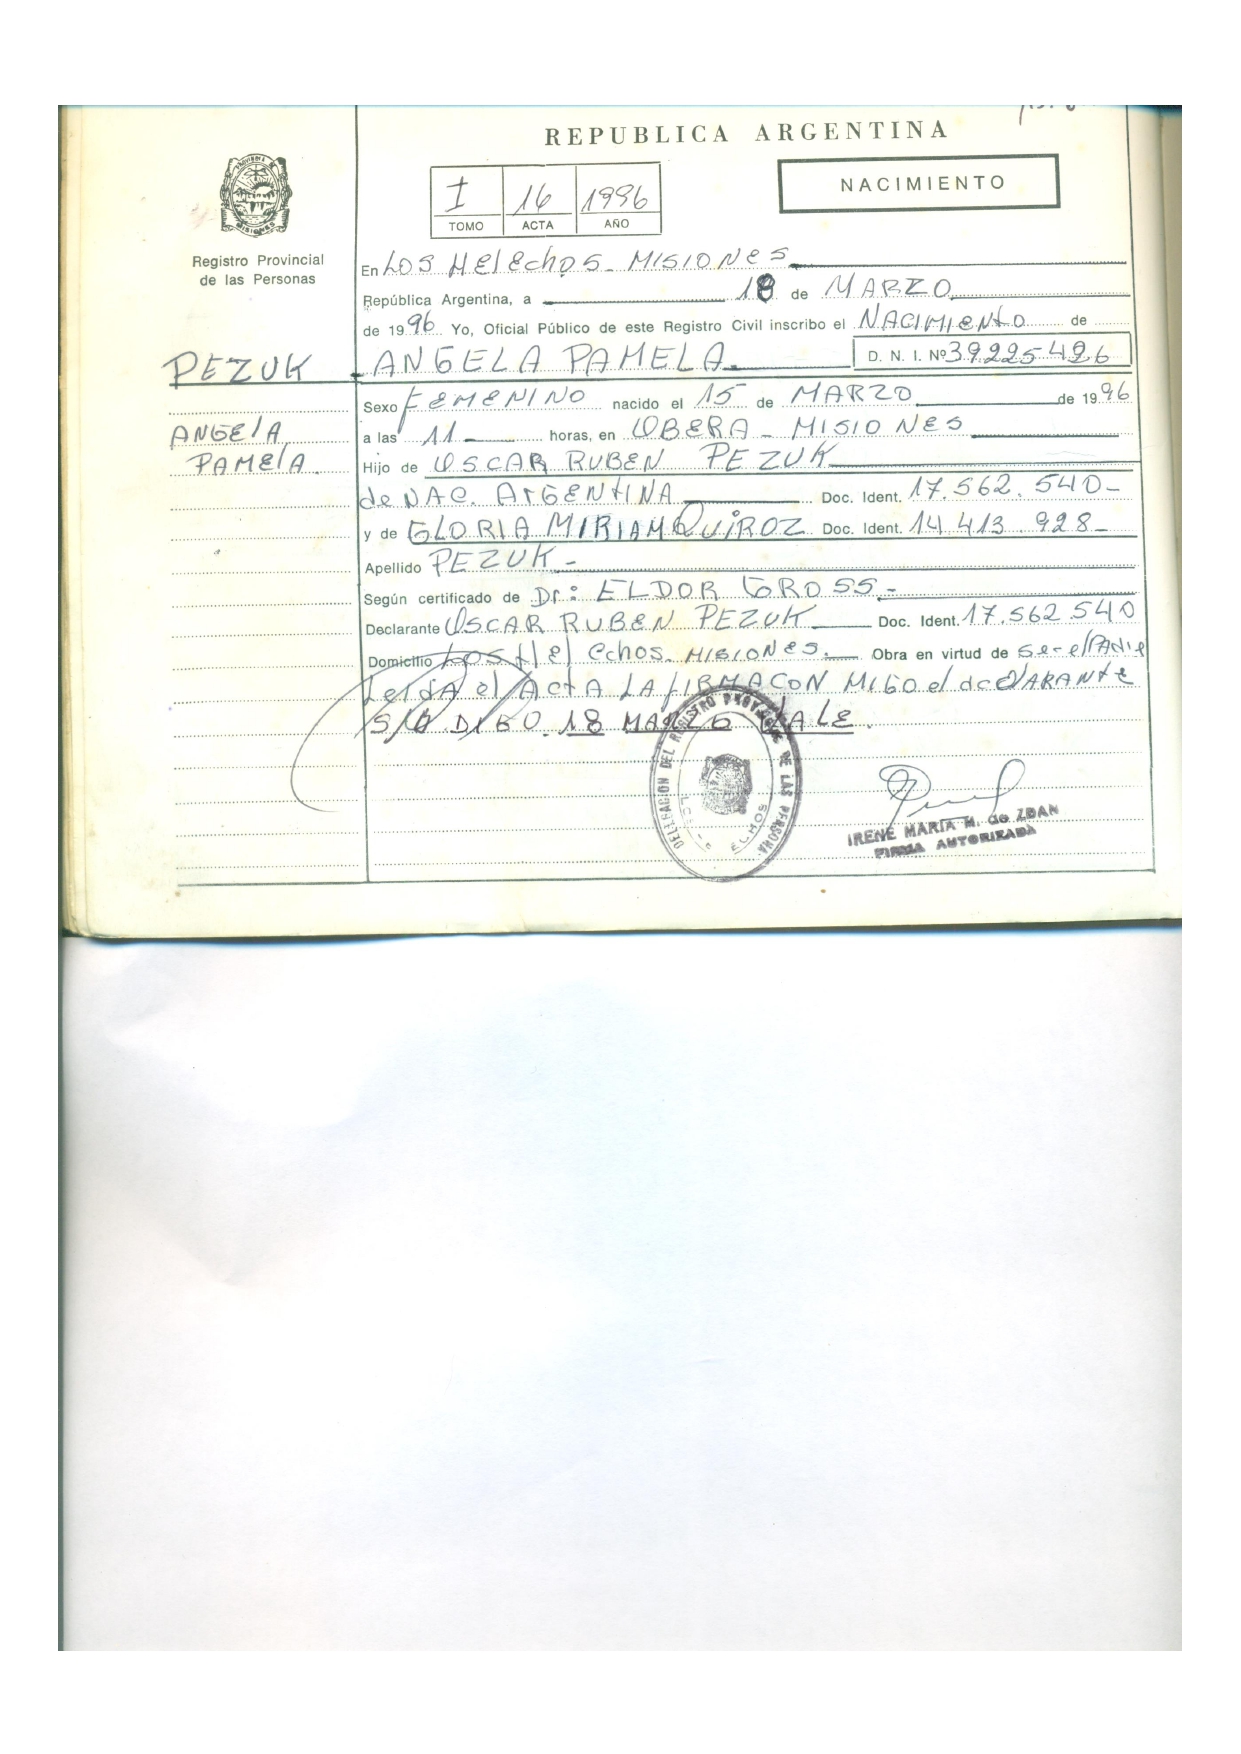 REPUBLICA ARGENTINA
NACIMIENTO
I 16 1996
TOMO ACTA AÑO
Registro Provincial
de las Personas
En LOS HELECHOS - MISIONES
República Argentina, a 18 de MARZO
de 1996 Yo, Oficial Público de este Registro Civil inscribo el NACIMIENTO de
PEZUK ANGELA PAMELA D. N. I. Nº 39225426
Sexo FEMENINO nacido el 15 de MARZO de 1996
ANGELA
PAMELA
a las 11 horas, en OBERA - MISIONES
Hijo de OSCAR RUBEN PEZUK
de NAC. ARGENTINA Doc. Ident. 17.562.540-
y de GLORIA MIRIAM QUIROZ Doc. Ident. 14 413 928-
Apellido PEZUK -
Según certificado de Dr: ELDOR GROSS -
Declarante OSCAR RUBEN PEZUK Doc. Ident. 17.562 540
Domicilio Los Helechos - MISIONES. Obra en virtud de Ser el PADRE
LeidA el ActA LA fIRMA CON MIGO el dcClARANte
S/O DIGO 18 MARZO VALE.
DELEGACION DEL REGISTRO PROVINCIAL DE LAS PERSONA
IRENE MARIA M. de ZBAN
FIRMA AUTORIZADA